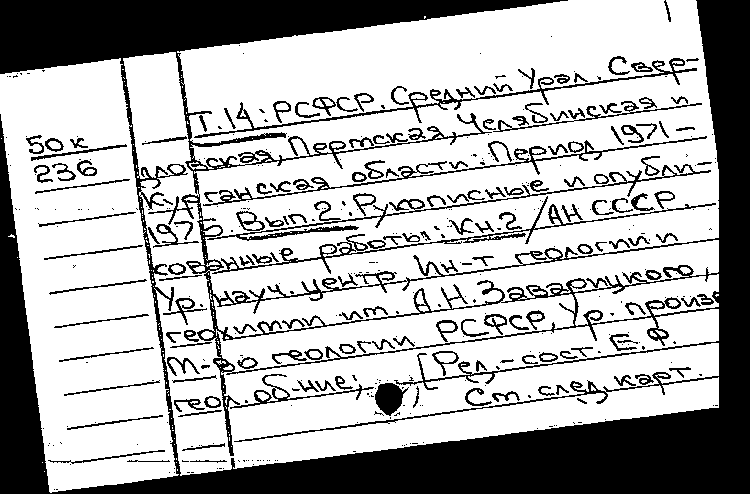 50к
236
Т.14: РСФСР. Средний Урал. Свер-
дловская, Пермская, Челябинская и
Курганская области: Период 1971-
1975. Вып.2: Рукописные и опубли-
кованные работы: Кн.2 / АН СССР.
Ур. науч. центр, Ин-т геологии и
геохимии им. А.Н. Заварицкого,
М-во геологии РСФСР, Ур. произв.
геол. об-ние; [Ред.-сост. Е.Ф.
См. след. карт.